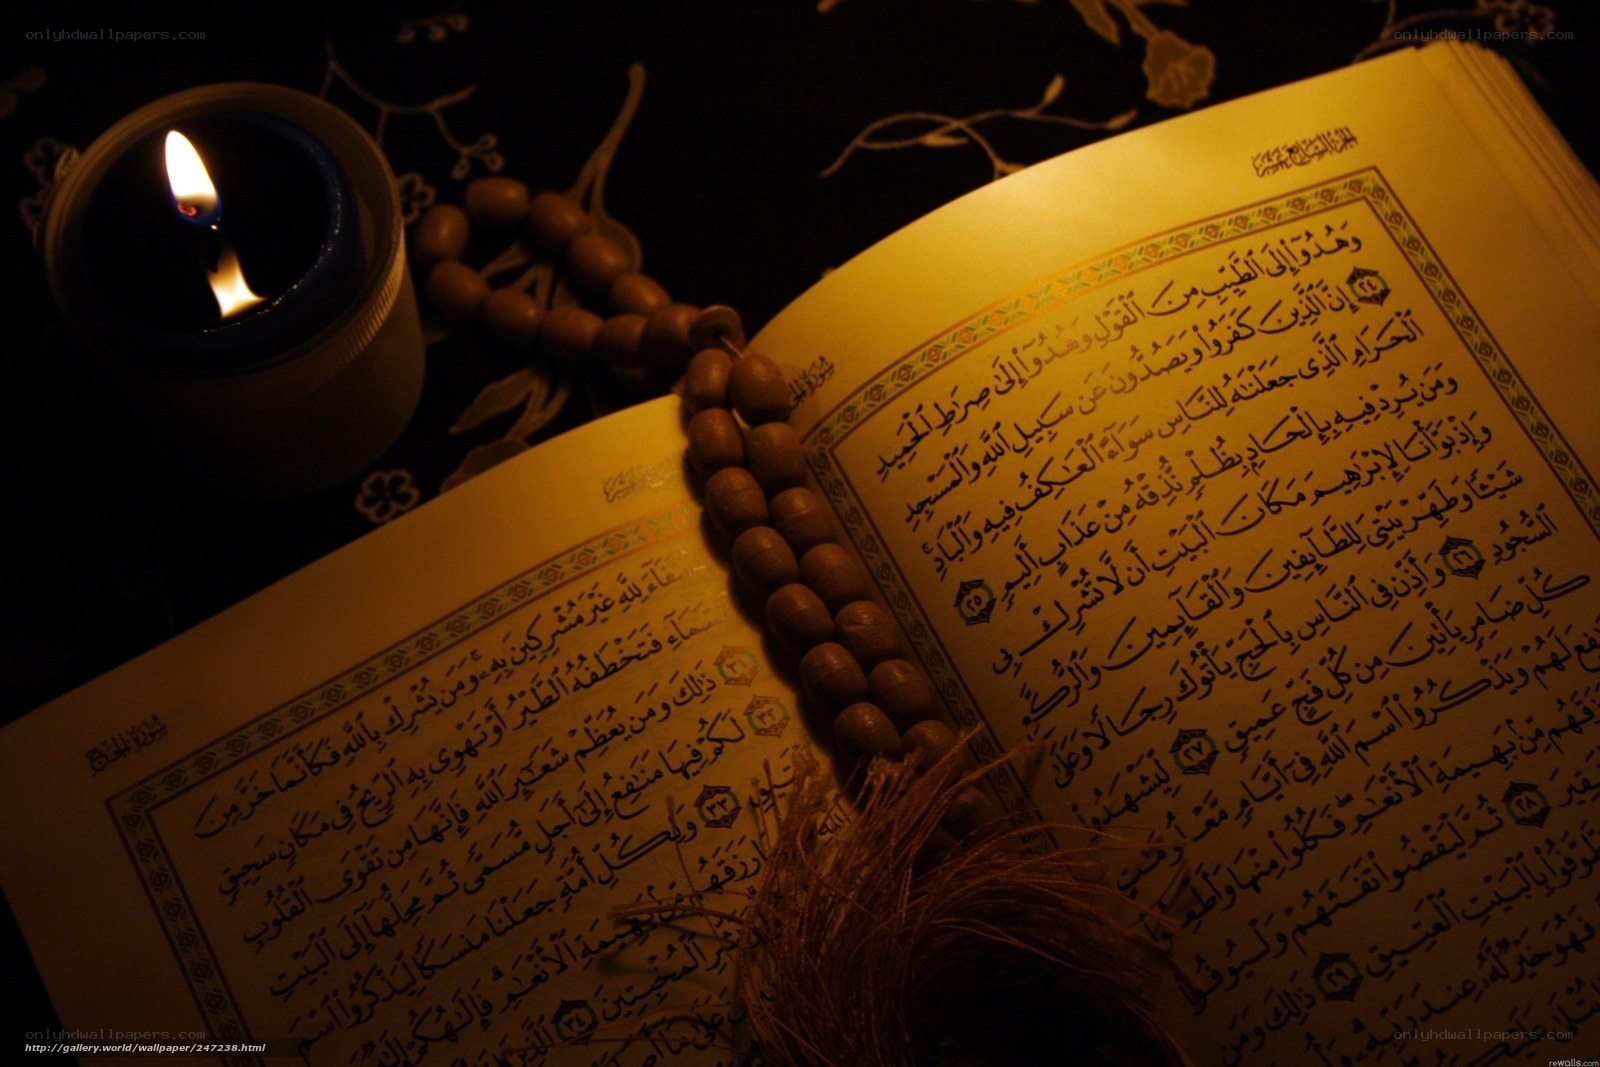 onlyhdwallpapers.com
onlyhdwallpapers.com
الجزء السابع عشر
سورة الحج
وَهُدُوٓا۟ إِلَى ٱلطَّيِّبِ مِنَ ٱلْقَوْلِ وَهُدُوٓا۟ إِلَىٰ صِرَٰطِ ٱلْحَمِيدِ
٢٤ إِنَّ ٱلَّذِينَ كَفَرُوا۟ وَيَصُدُّونَ عَن سَبِيلِ ٱللَّهِ وَٱلْمَسْجِدِ
ٱلْحَرَامِ ٱلَّذِى جَعَلْنَٰهُ لِلنَّاسِ سَوَآءً ٱلْعَٰكِفُ فِيهِ وَٱلْبَادِ ۚ
وَمَن يُرِدْ فِيهِ بِإِلْحَادٍۭ بِظُلْمٍ نُّذِقْهُ مِنْ عَذَابٍ أَلِيمٍ ٢٥
وَإِذْ بَوَّأْنَا لِإِبْرَٰهِيمَ مَكَانَ ٱلْبَيْتِ أَن لَّا تُشْرِكْ بِى
شَيْـًٔا وَطَهِّرْ بَيْتِىَ لِلطَّآئِفِينَ وَٱلْقَآئِمِينَ وَٱلرُّكَّعِ
ٱلسُّجُودِ ٢٦ وَأَذِّن فِى ٱلنَّاسِ بِٱلْحَجِّ يَأْتُوكَ رِجَالًا وَعَلَىٰ
كُلِّ ضَامِرٍ يَأْتِينَ مِن كُلِّ فَجٍّ عَمِيقٍ ٢٧ لِّيَشْهَدُوا۟
لَهُمْ وَيَذْكُرُوا۟ ٱسْمَ ٱللَّهِ فِىٓ أَيَّامٍ مَّعْلُومَٰتٍ
مِّنۢ بَهِيمَةِ ٱلْأَنْعَٰمِ ۖ فَكُلُوا۟ مِنْهَا وَأَطْعِمُوا۟
٢٨ ثُمَّ لْيَقْضُوا۟ تَفَثَهُمْ وَلْيُوفُوا۟
بِٱلْبَيْتِ ٱلْعَتِيقِ ٢٩ ذَٰلِكَ وَمَن
فَهُوَ خَيْرٌ لَّهُۥ عِندَ رَبِّهِۦ
سورة الحج
غَيْرَ مُشْرِكِينَ بِهِۦ ۚ وَمَن يُشْرِكْ بِٱللَّهِ فَكَأَنَّمَا خَرَّ مِنَ
فَتَخْطَفُهُ ٱلطَّيْرُ أَوْ تَهْوِى بِهِ ٱلرِّيحُ فِى مَكَانٍ سَحِيقٍ
٣١ ذَٰلِكَ وَمَن يُعَظِّمْ شَعَٰٓئِرَ ٱللَّهِ فَإِنَّهَا مِن تَقْوَى ٱلْقُلُوبِ
٣٢ لَكُمْ فِيهَا مَنَٰفِعُ إِلَىٰٓ أَجَلٍ مُّسَمًّى ثُمَّ مَحِلُّهَآ إِلَى ٱلْبَيْتِ
٣٣ وَلِكُلِّ أُمَّةٍ جَعَلْنَا مَنسَكًا لِّيَذْكُرُوا۟ ٱسْمَ
رَزَقَهُم مِّنۢ بَهِيمَةِ ٱلْأَنْعَٰمِ ۗ فَإِلَٰهُكُمْ
ٱلْمُخْبِتِينَ ٣٤
onlyhdwallpapers.com
onlyhdwallpapers.com
http://gallery.world/wallpaper/247238.html
rewalls.com